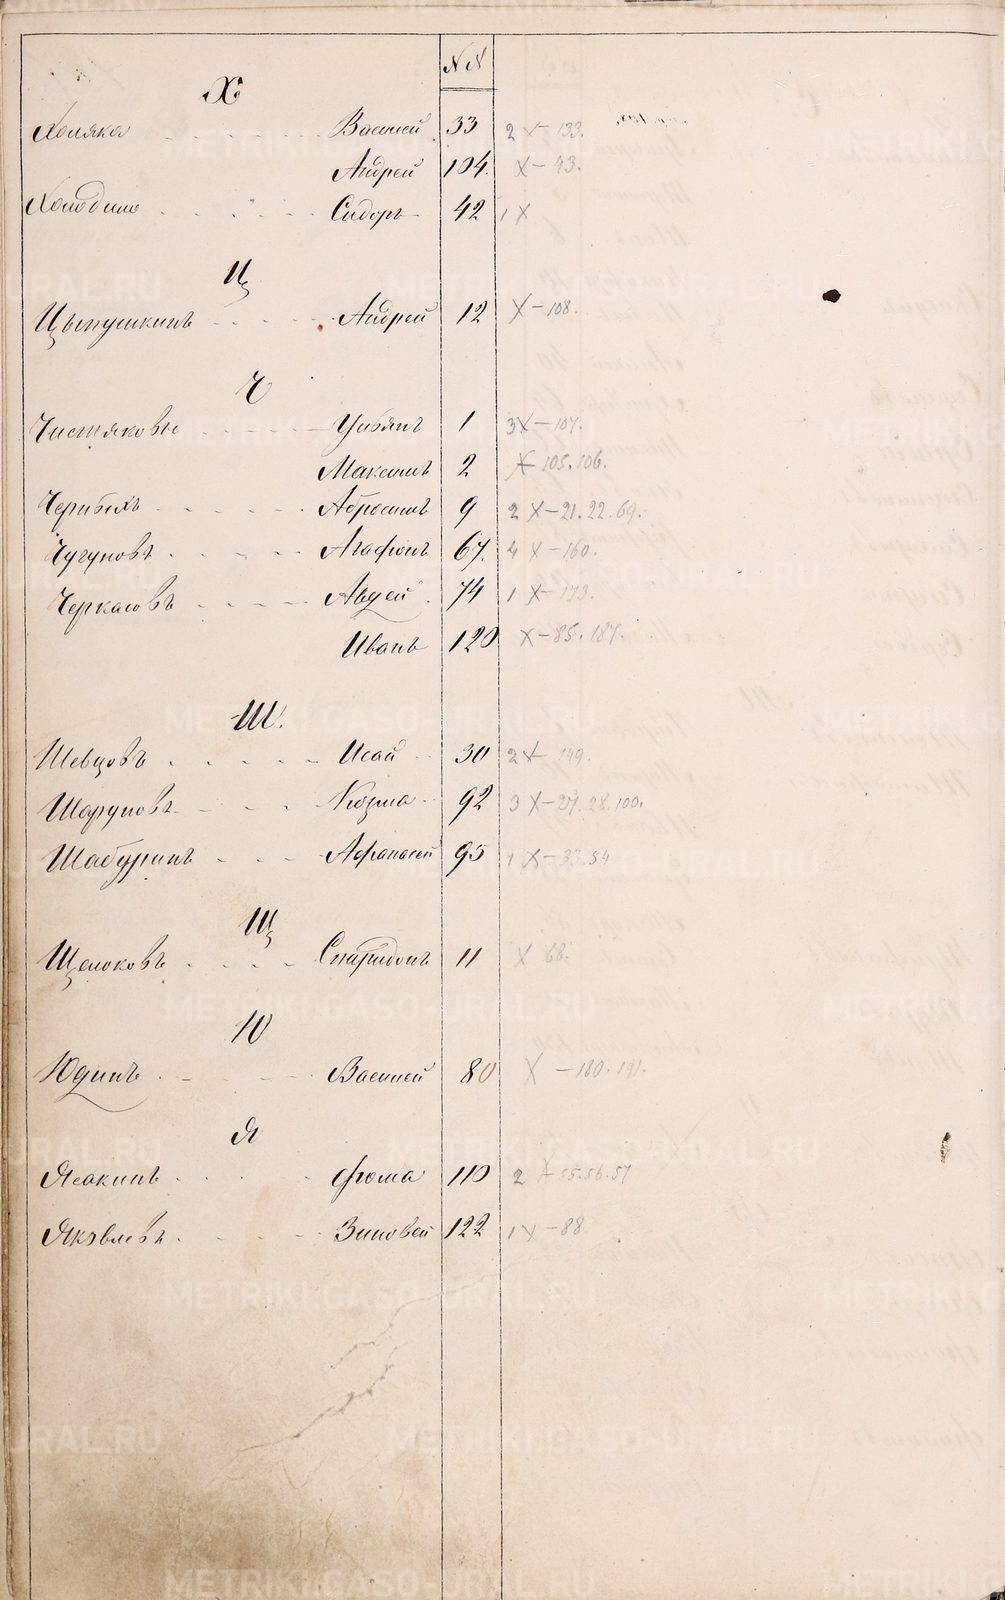 N N
Х
Холяко Василей 33 2 X-133.
Андрей 104. X-43.
Холодило Сидоръ 42 1 X
Ц
Цыпушкинъ Андрей 12 X-108.
Ч
Чистяковы Ульянъ 1 3X-107.
Максимъ 2 X 105.106.
Черныхъ Абросимъ 9 2 X-21.22.69.
Чугуновъ Агафонъ 67. 4 X-160.
Черкасовъ Авдей 74 1 X-173.
Иванъ 120 X-85.187.
Ш.
Шевцовъ Исай 30 2 X 149.
Шаруновъ Козма 92 3 X-27.28.100.
Шабуринъ Афанасей 95 1 X-33.54
Щ
Щелоковъ Спиридонъ 11 X 68.
Ю
Юдинъ Василей 80 X-180.191.
Я
Ясакинъ Фома 110 2 X 55.56.57
Яковлевъ Зиновей 122 1 X-88
METRIKI.GASO-URAL.RU